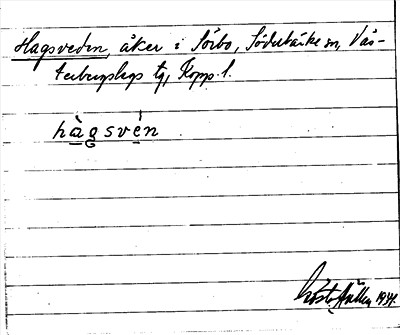 Hagsveden, åker i Sörbo, Söderbärke sn, Väs-
terbergslags tg, Kopp. l.
hàgsvén
Gösta 1934.